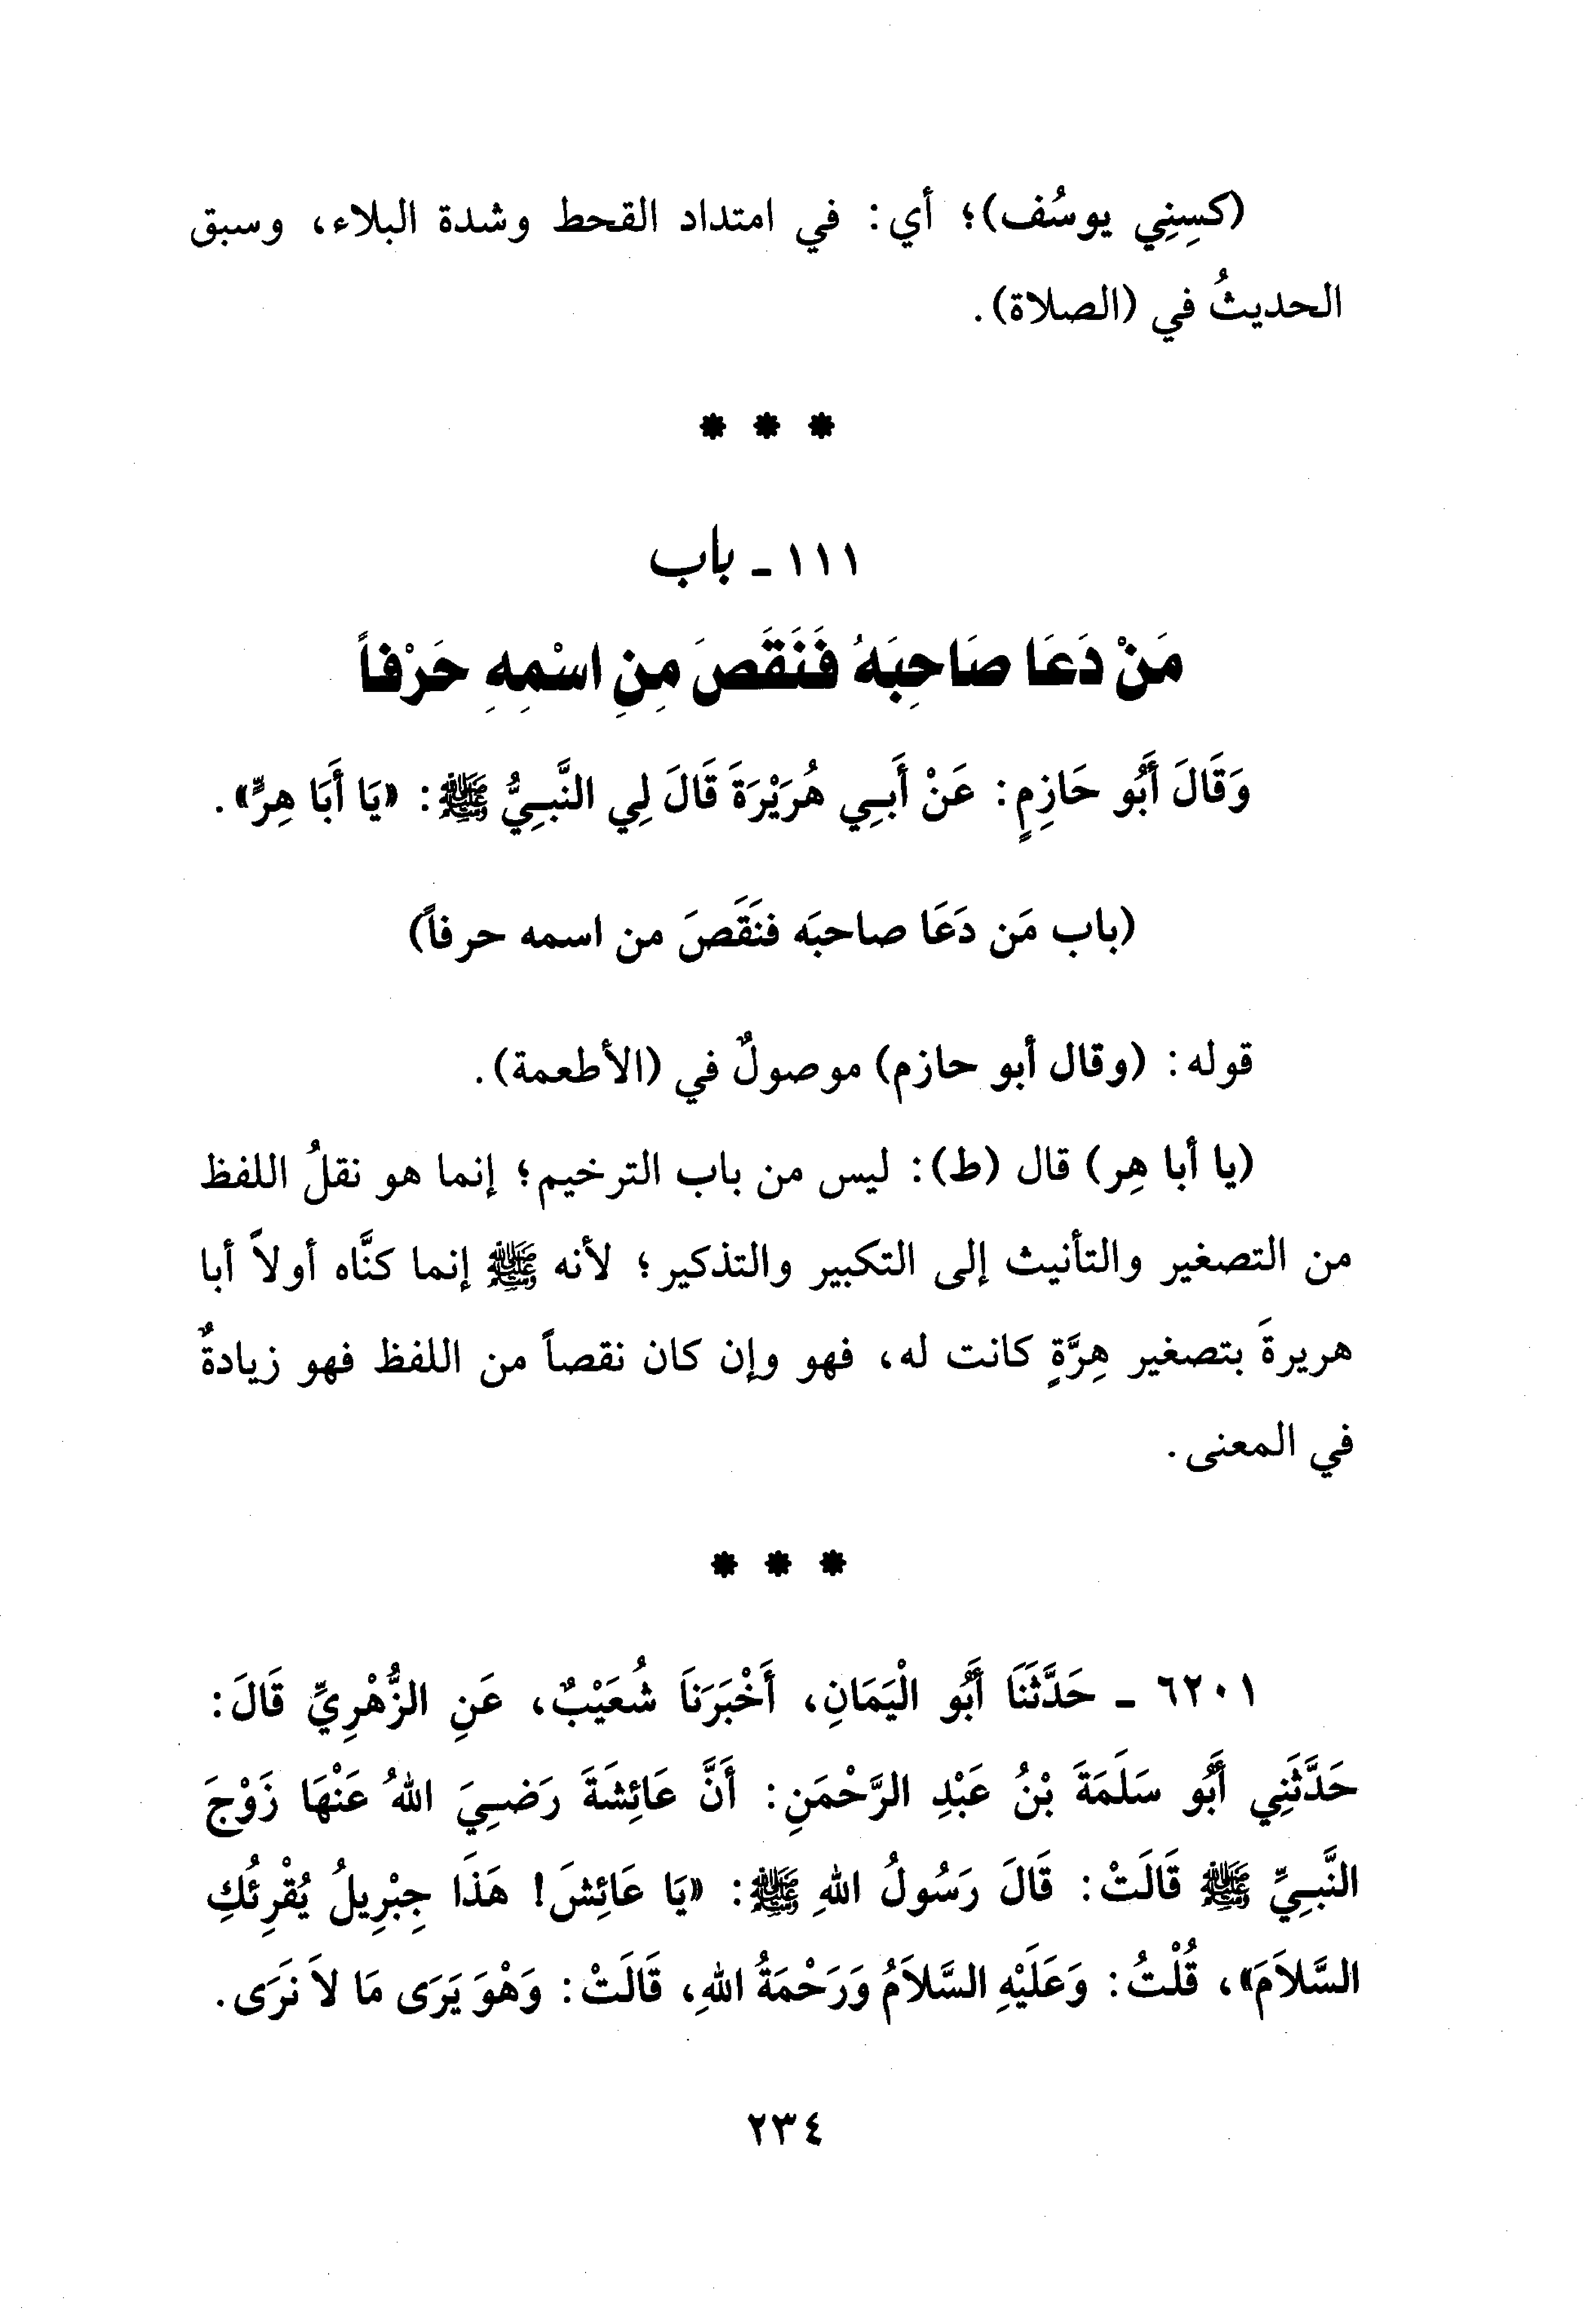 (كسِنِي يوسُف)؛ أي: في امتداد القحط وشدة البلاء، وسبق
الحديثُ في (الصلاة).
* * *
١١١ - باب
مَنْ دَعَا صَاحِبَهُ فَنَقَصَ مِنِ اسْمِهِ حَرْفاً
وَقَالَ أَبُو حَازِمٍ: عَنْ أَبِي هُرَيْرَةَ قَالَ لِي النَّبِيُّ ﷺ: «يَا أَبَا هِرٍّ».
(باب مَن دَعَا صاحبَه فنَقَصَ من اسمه حرفاً)
قوله: (وقال أبو حازم) موصولٌ في (الأطعمة).
(يا أبا هِر) قال (ط): ليس من باب الترخيم؛ إنما هو نقلُ اللفظ
من التصغير والتأنيث إلى التكبير والتذكير؛ لأنه ﷺ إنما كنَّاه أولاً أبا
هريرةَ بتصغير هِرَّةٍ كانت له، فهو وإن كان نقصاً من اللفظ فهو زيادةٌ
في المعنى.
* * *
٦٢٠١ - حَدَّثَنَا أَبُو الْيَمَانِ، أَخْبَرَنَا شُعَيْبٌ، عَنِ الزُّهْرِيِّ قَالَ:
حَدَّثَنِي أَبُو سَلَمَةَ بْنُ عَبْدِ الرَّحْمَنِ: أَنَّ عَائِشَةَ رَضِيَ اللهُ عَنْهَا زَوْجَ
النَّبِيِّ ﷺ قَالَتْ: قَالَ رَسُولُ اللهِ ﷺ: «يَا عَائِشَ! هَذَا جِبْرِيلُ يُقْرِئُكِ
السَّلاَمَ»، قُلْتُ: وَعَلَيْهِ السَّلاَمُ وَرَحْمَةُ اللهِ، قَالَتْ: وَهْوَ يَرَى مَا لاَ نَرَى.
٢٣٤